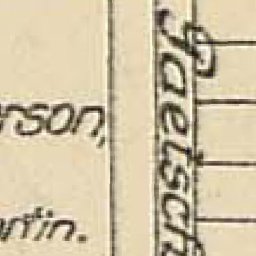 erson,
artin.
Jaetsch